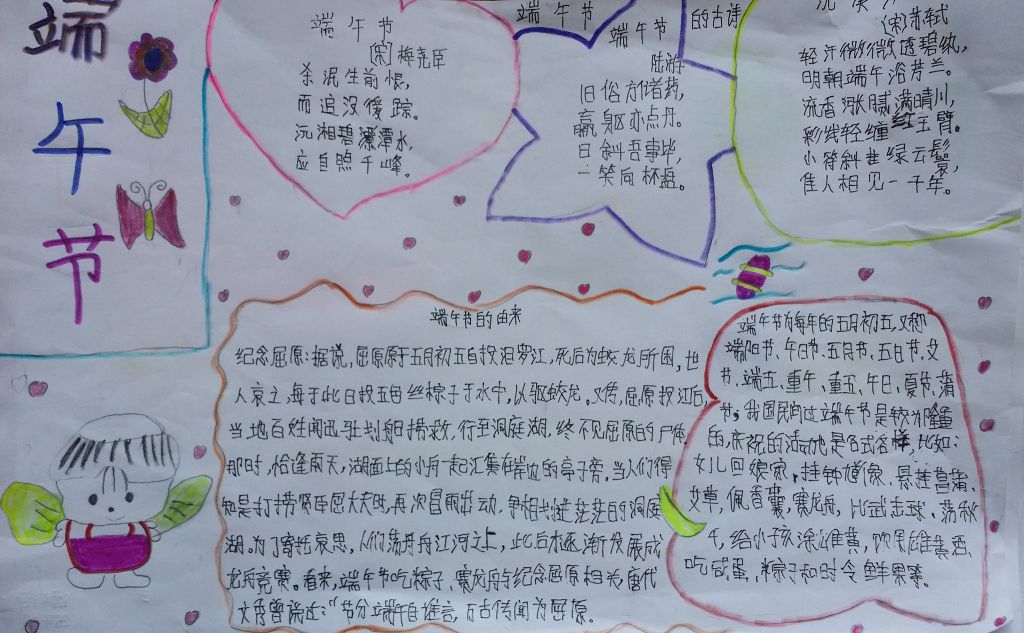 端
午
节
端午节
(宋)梅尧臣
沉泥生前恨,
而追没後踪。
沅湘碧潭水,
应自照千峰。
端午节
的古诗
端午节
陆游
旧俗方储药,
羸躯亦点丹。
日斜吾事毕,
一笑向杯盘。
(宋)苏轼
轻汗微微透碧纨,
明朝端午浴芳兰。
流香涨腻满晴川,
彩线轻缠红玉臂。
小符斜挂绿云鬟,
佳人相见一千年。
端午节的由来
纪念屈原:据说,屈原于五月初五自投汨罗江,死后为蛟龙所困,世
人哀之,每于此日投五色丝粽子于水中,以驱蛟龙。又传,屈原投江后,
当地百姓闻迅赶划船捞救,行至洞庭湖,终不见屈原的尸体。
那时,恰逢雨天,湖面上的小舟一起汇集在岸边的亭子旁。当人们得
知是打捞贤臣屈大夫时,再次冒雨出动,争相划进茫茫的洞庭
湖。为了寄托哀思,人们荡舟江河之上,此后才逐渐发展成
龙舟竞赛。看来,端午节吃粽子、赛龙舟与纪念屈原相关,唐代
文秀曾说过:“节分端午自谁言,万古传闻为屈原。
端午节为每年的五月初五,又称
端阳节、午日节、五月节、五日节、艾
节、端五、重午、重五、午日、夏节、蒲
节;我国民间过端午节是较为隆重
的,庆祝的活动也是各式各样,比如:
女儿回娘家,挂钟馗像、悬挂菖蒲、
艾草,佩香囊,赛龙舟,比武击球、荡秋
千,给小孩涂雄黄,饮用雄黄酒、
吃咸蛋、粽子和时令鲜果等。